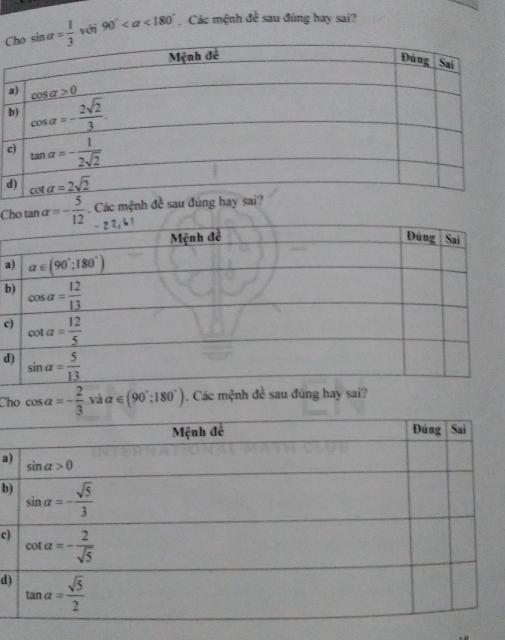 Cho sin α = 1/3 với 90° < α < 180°. Các mệnh đề sau đúng hay sai?
Mệnh đề Đúng Sai
a) cos α > 0
b) cos α = -2√2/3.
c) tan α = -1/(2√2)
d) cot α = 2√2
Cho tan α = -5/12. Các mệnh đề sau đúng hay sai?
-22,61
Mệnh đề Đúng Sai
a) α ∈ (90°;180°)
b) cos α = 12/13
c) cot α = 12/5
d) sin α = 5/13
Cho cos α = -2/3 và α ∈ (90°;180°). Các mệnh đề sau đúng hay sai?
Mệnh đề Đúng Sai
INTERNATIONAL MATH CLUB
a) sin α > 0
b) sin α = -√5/3
c) cot α = -2/√5
d) tan α = √5/2